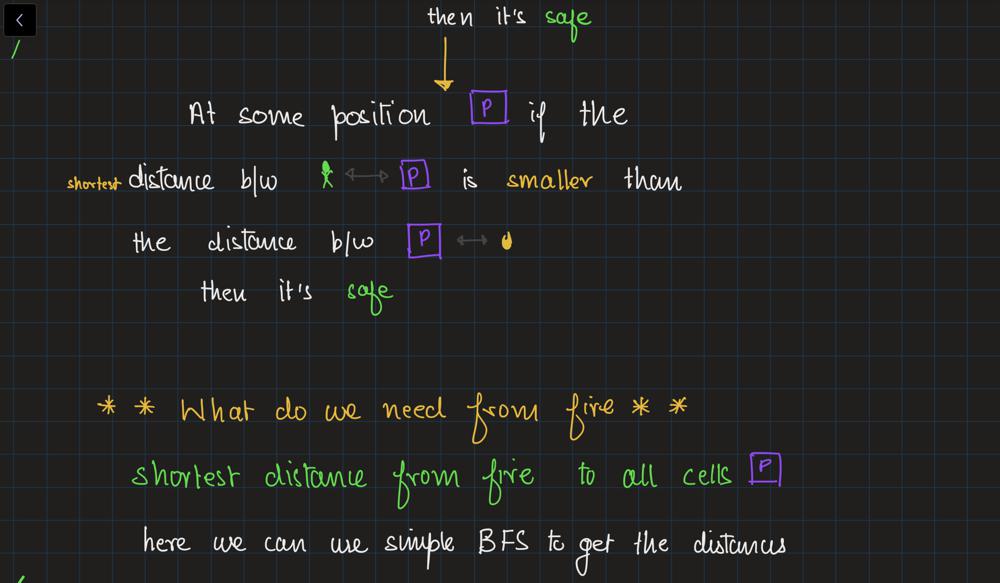 then it's safe
At some position P if the
shortest distance b/w P is smaller than
the distance b/w P
then it's safe
* * What do we need from fire * *
shortest distance from fire to all cells P
here we can use simple BFS to get the distances